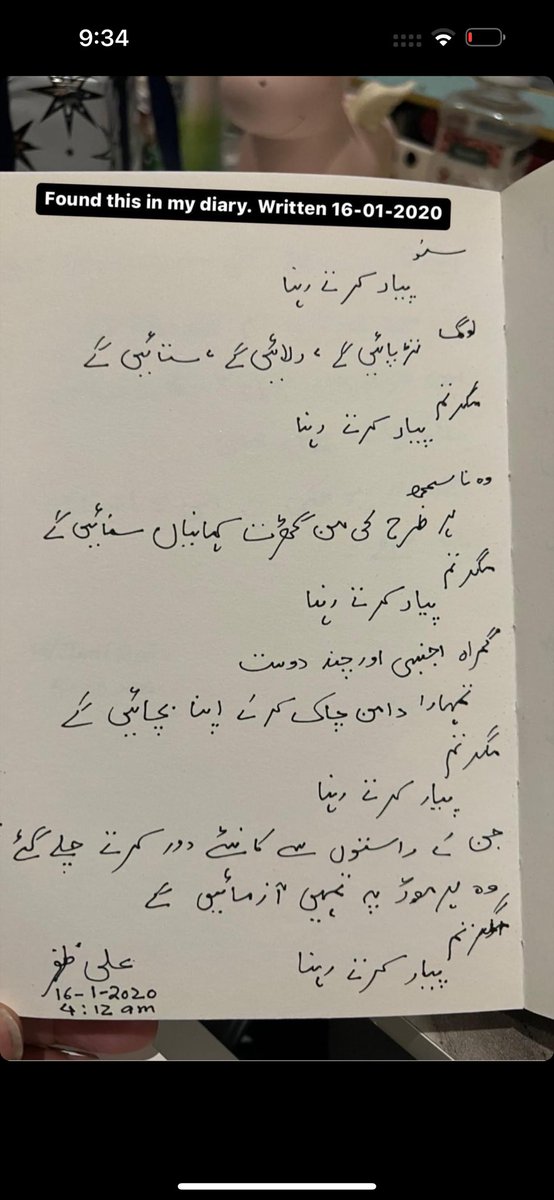 9:34
Found this in my diary. Written 16-01-2020
سنو
پیار کرتے رہنا
لوگ تڑپائیں گے، رلائیں گے، ستائیں گے
مگر تم
پیار کرتے رہنا
وہ نا سمجھ
ہر طرح کی من گھڑت کہانیاں سنائیں گے
مگر تم
پیار کرتے رہنا
گمراہ اجنبی اور چند دوست
تمہارا دامن چاک کر کے اپنا بچائیں گے
مگر تم
پیار کرتے رہنا
جن کے راستوں سے کانٹے دور کرتے چلے گئے
وہ ہر موڑ پہ تمہیں آزمائیں گے
مگر تم
پیار کرتے رہنا
علی ظفر
16-1-2020
4:12 am